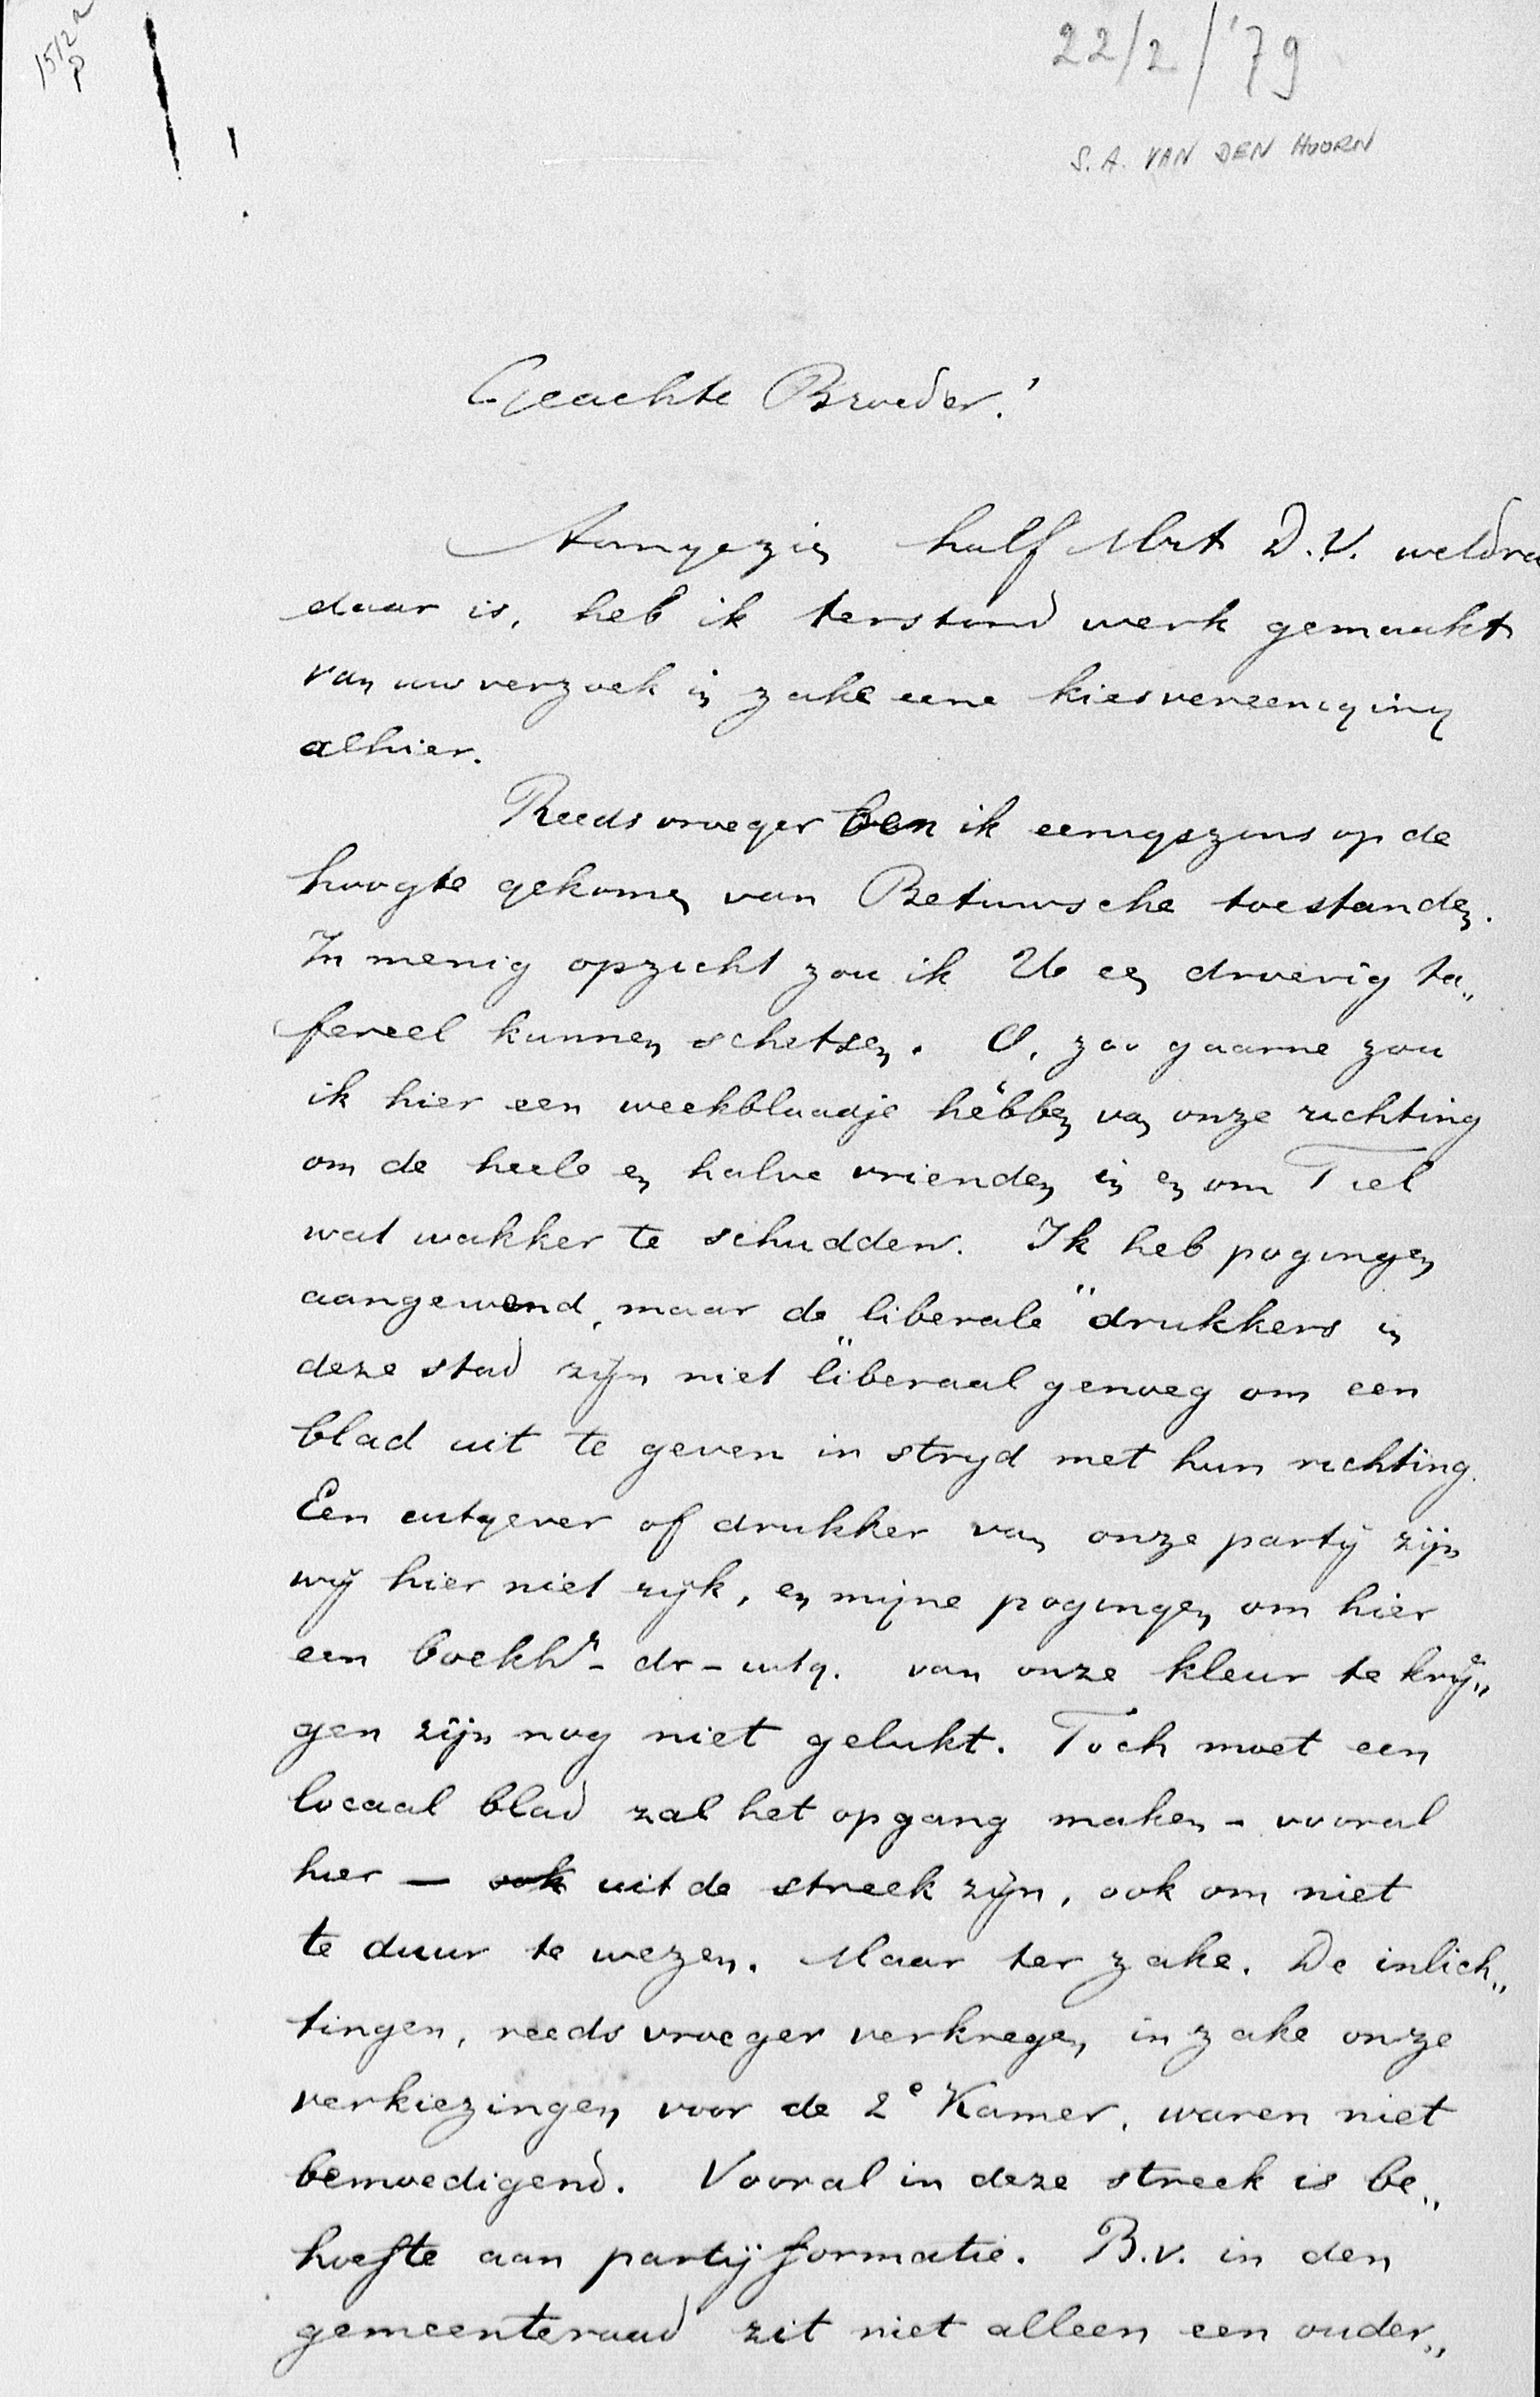 1512a
P
22/2/'79
S.A. VAN DEN HOORN
Geachte Broeder!
Aangezien half Mrt D.V. weldra
daar is, heb ik terstond werk gemaakt
van uw verzoek in zake eene kiesvereeniging
alhier.
Reeds vroeger ben ik eenigszins op de
hoogte gekomen van Betuwsche toestanden.
In menig opzicht zou ik U een droevig ta„
fereel kunnen schetsen. O, zoo gaarne zou
ik hier een weekblaadje hebben van onze richting
om de heele en halve vrienden in en om Tiel
wat wakker te schudden. Ik heb pogingen
aangewend, maar de "liberale" drukkers in
deze stad zijn niet "liberaal genoeg om een
blad uit te geven in stryd met hun richting.
Een uitgever of drukker van onze partij zijn
wij hier niet rijk, en mijne pogingen om hier
een boekhr - dr - uitg. van onze kleur te krij„
gen zijn nog niet gelukt. Toch moet een
locaal blad zal het opgang maken - vooral
hier — ook uit de streek zijn, ook om niet
te duur te wezen. Maar ter zake. De inlich„
tingen, reeds vroeger verkregen in zake onze
verkiezingen voor de 2e Kamer, waren niet
bemoedigend. Vooral in deze streek is be„
hoefte aan partijformatie. B.v. in den
gemeenteraad zit niet alleen een ouder„